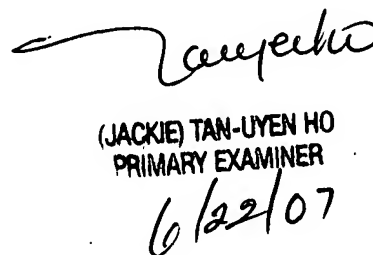 (JACKIE) TAN-UYEN HO
PRIMARY EXAMINER
6/22/07